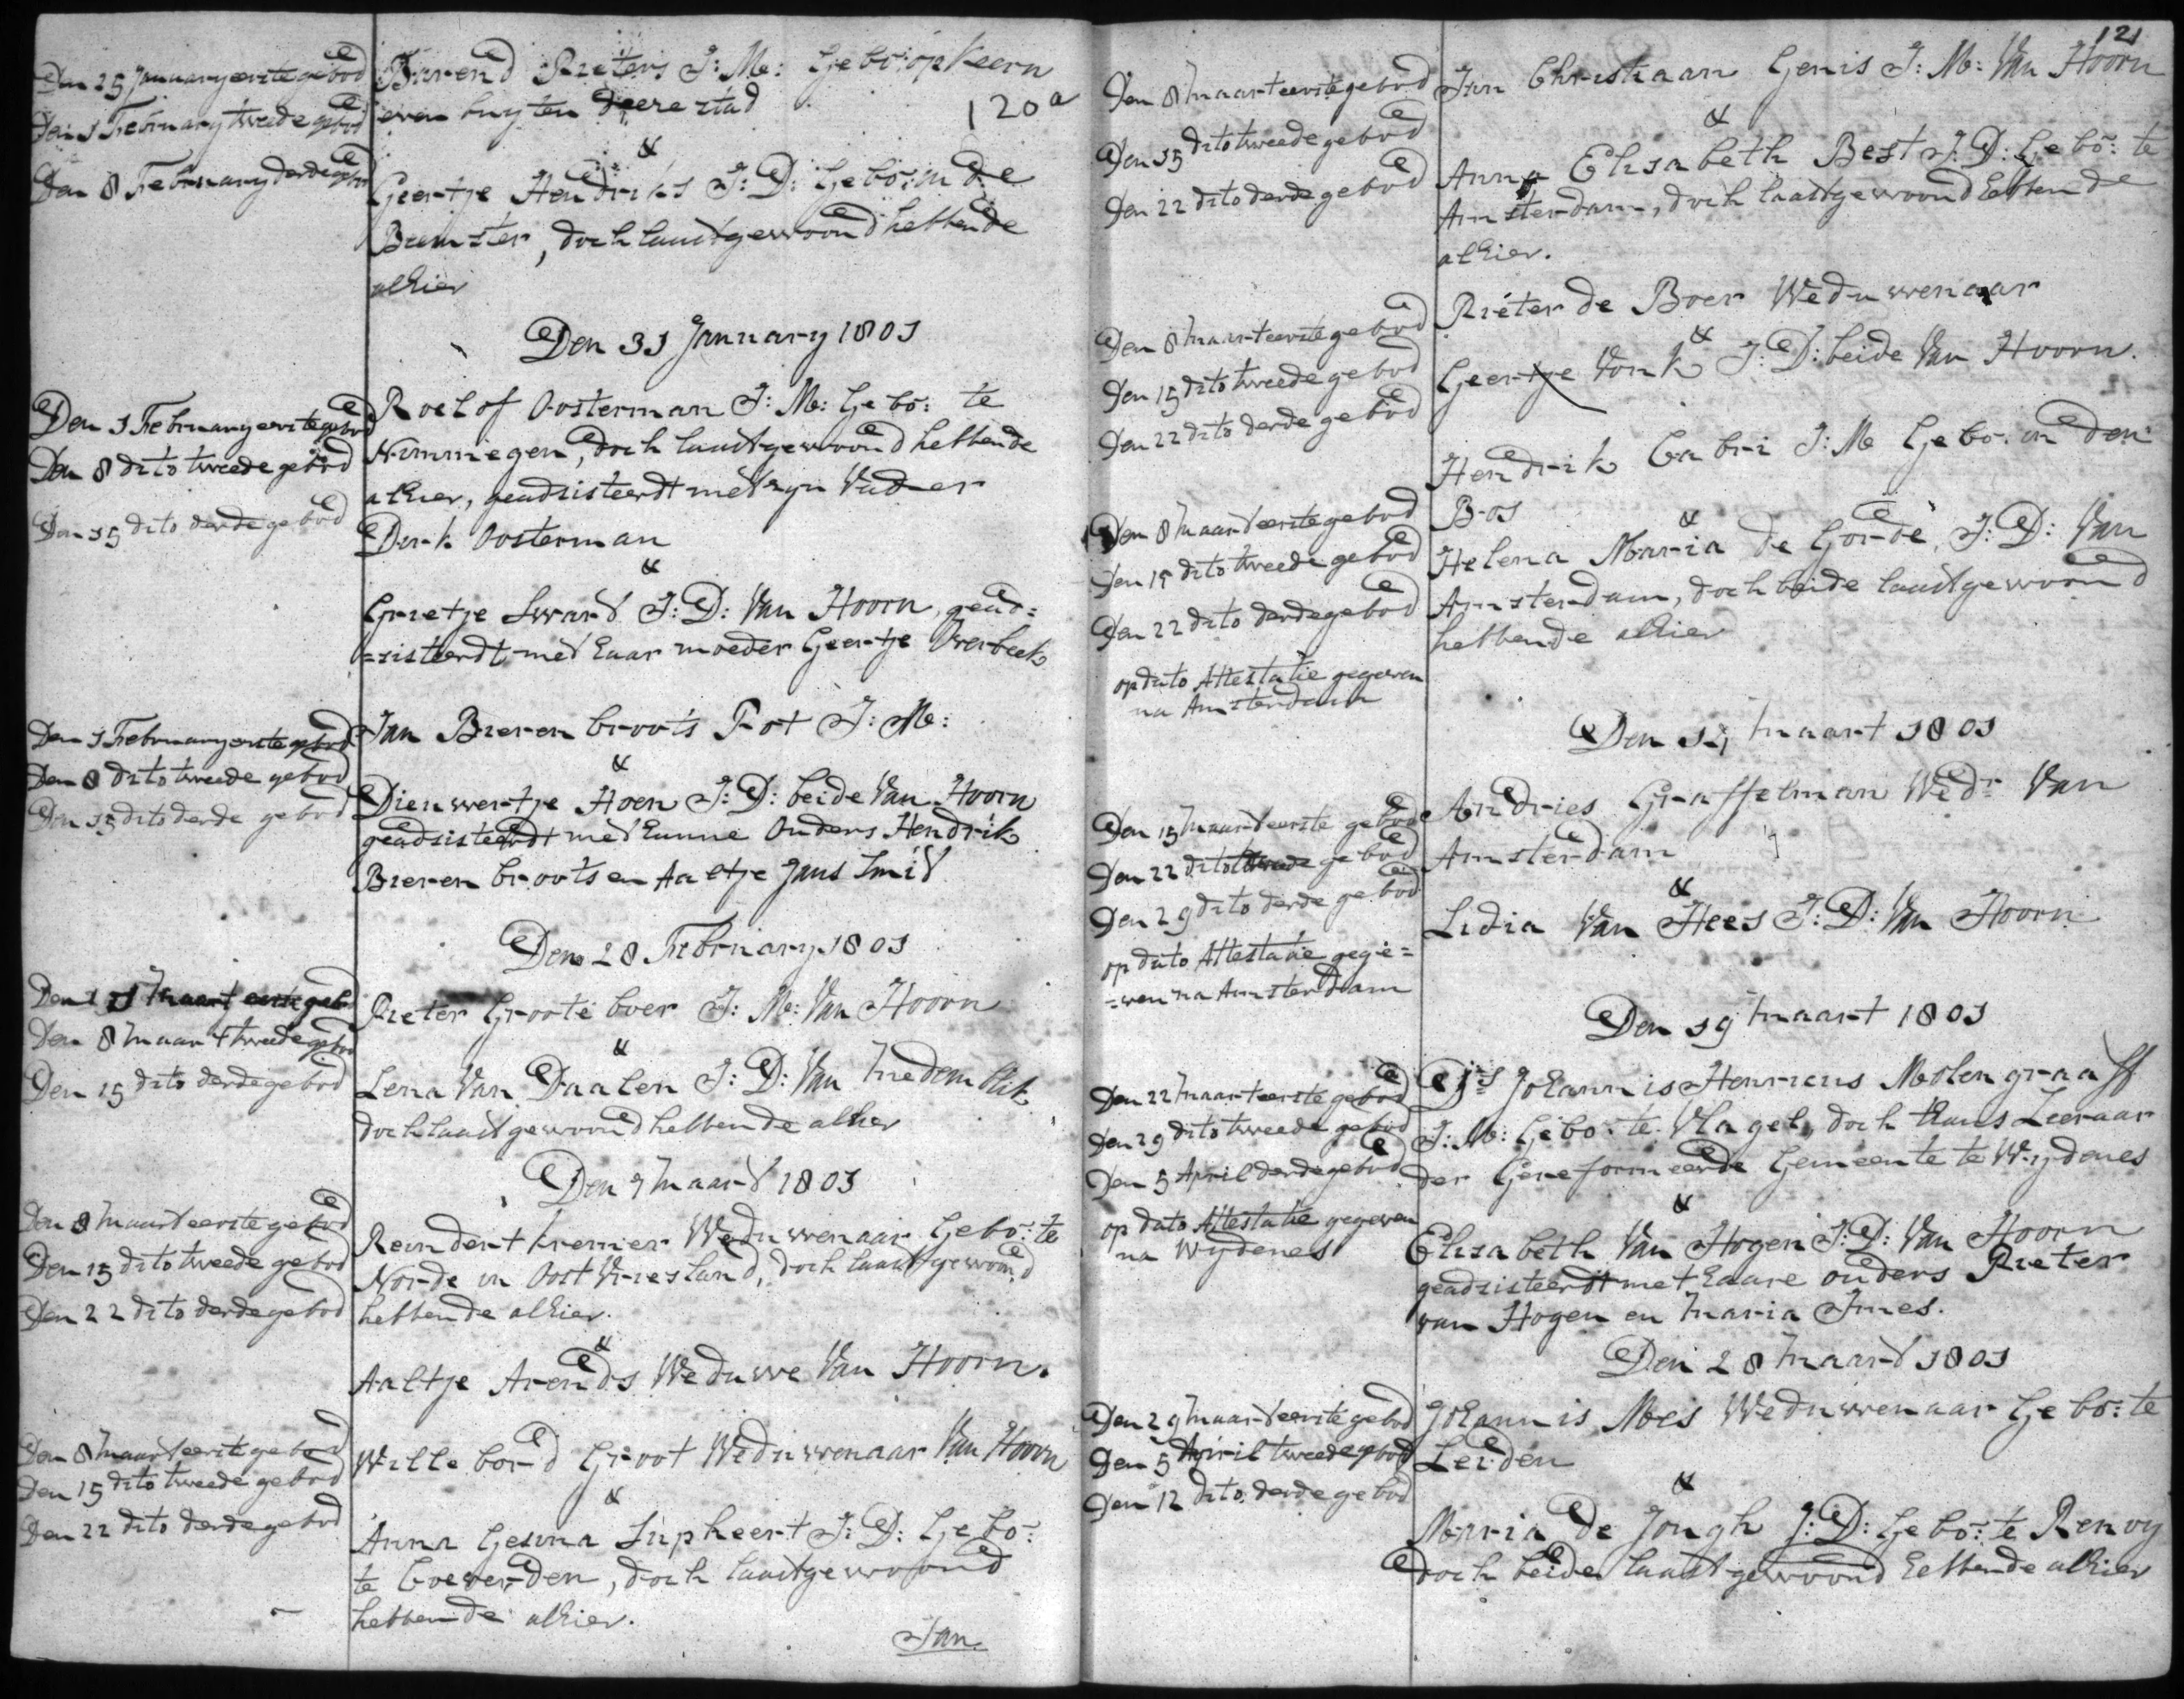 Den 25 January eerste gebod
Den 1 February tweede gebod
Den 8 February derde gebod
Barend Pieters J: M: Gebo: op Keern
even buyten deese stad
120a
&
Geertje Hendriks J: D: Gebo: in de
Beemster, doch laast gewoond hebbende
alhier
Den 31 January 1801
Den 1 February eerste gebod
Den 8 dito tweede gebod
Den 15 dito derde gebod
Roelof Oosterman J: M: Gebo: te
Nimmegen, doch laast gewoond hebbende
alhier, geadsisteerdt met zyn Vader
Derk Oosterman
&
Grietje Swart J: D: Van Hoorn, gead=
=sisteerdt met haar moeder Geertje Overbeek
Den 1 February eerste gebod
Den 8 dito tweede gebod
Den 15 dito derde gebod
Jan Bieren broots Pot J: M:
&
Dieuwertje Hoen J: D: beide Van Hoorn
geadsisteerdt met hunne Ouders Hendrik
Bieren broots en Aaltje Jans Smit
Den 28 February 1801
Den 1 Maart eerste geb
Den 8 Maart tweede gebod
Den 15 dito derde gebod
Pieter Grooteboer J: M: Van Hoorn
&
Lena Van Daalen J: D: Van Medemblik
doch laast gewoond hebbende alhier
Den 7 Maart 1801
Den 8 Maart eerste gebod
Den 15 dito tweede gebod
Den 22 dito derde gebod
Reindert Kremer Weduwenaar Gebo: te
Norde in Oost Vriesland, doch laast gewoond
hebbende alhier.
&
Aaltje Arends Weduwe Van Hoorn.
Den 8 Maart eerste gebod
Den 15 dito tweede gebod
Den 22 dito derde gebod
Willebord Groot Weduwenaar Van Hoorn
&
Anna Gesina Supheert J: D: Gebo:
te Coeverden, doch laast gewoond
hebbende alhier.
Jan
121
Den 8 Maart eerste gebod
Den 15 dito tweede gebod
Den 22 dito derde gebod
Jan Christiaan Genis J: M: Van Hoorn
&
Anna Elisabeth Best J: D: Gebo: te
Amsterdam, doch laast gewoond hebbende
alhier.
Den 8 Maart eerste gebod
Den 15 dito tweede gebod
Den 22 dito derde gebod
Pieter de Boer Weduwenaar
&
Geertje Vonk J: D: beide Van Hoorn.
Den 8 Maart eerste gebod
Den 15 dito tweede gebod
Den 22 dito derde gebod
op dato Attestatie gegeven
na Amsterdam
Hendrik Cabri J: M Gebo: in den
Bos
&
Helena Maria de Gorde, J: D: Van
Amsterdam, doch beide laast gewoond
hebbende alhier
Den 14 Maart 1801
Den 15 Maart eerste gebod
Den 22 dito tweede gebod
Den 29 dito derde gebod
op dato Attestatie gege=
=ven na Amsterdam
Andries Graffelman Wedr Van
Amsterdam
&
Lidia Van Hees J: D: Van Hoorn
Den 19 Maart 1801
Den 22 Maart eerste gebod
Den 29 dito tweede gebod
Den 5 April derde gebod
op dato Attestatie gegeven
na Wydenes
Ds Johannis Henricus Molengraaff
J: M: Gebo: te Vlagel, doch thans Leeraar
der Gereformeerde Gemeente te Wydenes
&
Elisabeth Van Hogen J: D: Van Hoorn
geadsisteerdt met haare ouders Pieter
van Hogen en Maria Imes.
Den 28 Maart 1801
Den 29 Maart eerste gebod
Den 5 April tweede gebod
Den 12 dito derde gebod
Johannis Mes Weduwenaar Gebo: te
Leiden
&
Maria de Jongh J: D: Gebo: te Renoy
doch beide laast gewoond hebbende alhier